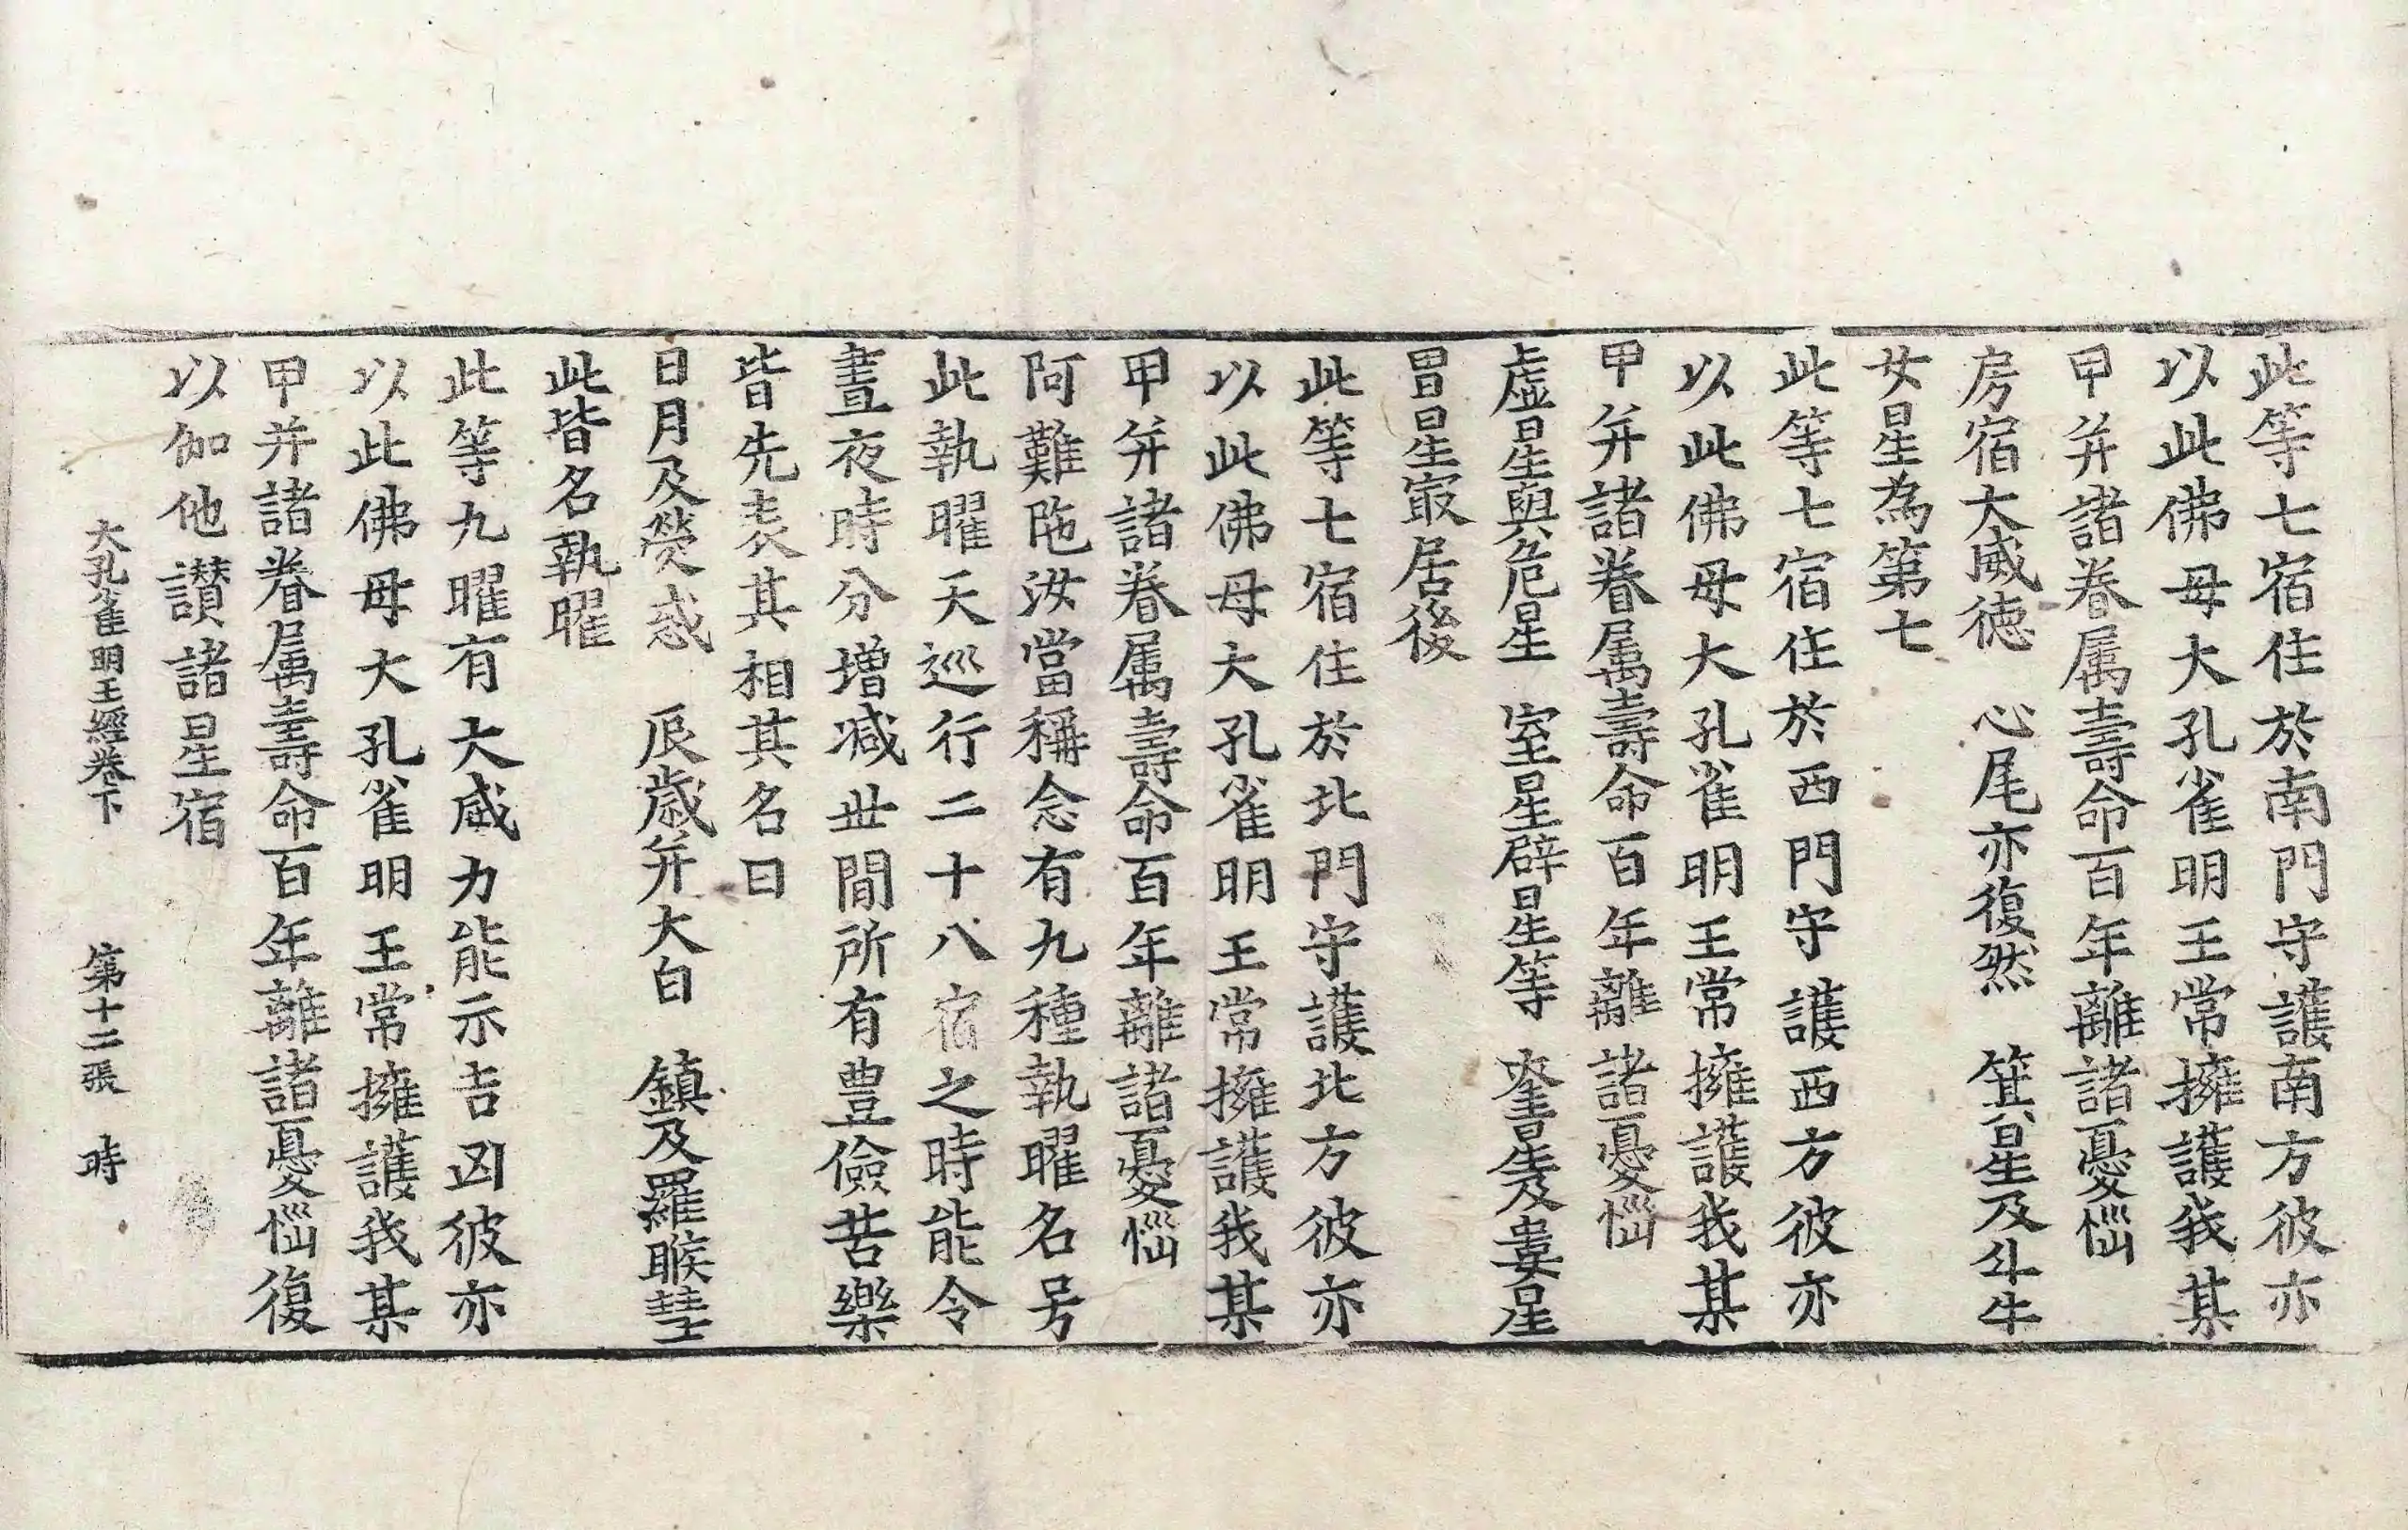 此等七宿住於南門守護南方彼亦
以此佛母大孔雀明王常擁護我某
甲并諸眷属壽命百年離諸憂惱
房宿大威徳　心尾亦復然　箕星及斗牛
女星為第七
此等七宿住於西門守護西方彼亦
以此佛母大孔雀明王常擁護我某
甲并諸眷属壽命百年離諸憂惱
虚星與危星　室星辟星等　奎星及婁星
胃星㝡居後
此等七宿住於北門守護北方彼亦
以此佛母大孔雀明王常擁護我某
甲并諸眷属壽命百年離諸憂惱
阿難陁汝當稱念有九種執曜名号
此執曜天巡行二十八宿之時能令
晝夜時分増减世間所有豊儉苦樂
皆先表其相其名曰
日月及熒惑　辰歳并大白　鎮及羅睺彗
此皆名執曜
此等九曜有大威力能示吉凶彼亦
以此佛母大孔雀明王常擁護我某
甲并諸眷属壽命百年離諸憂惱復
以伽他讃諸星宿
大孔雀明王經卷下　第十二張　時